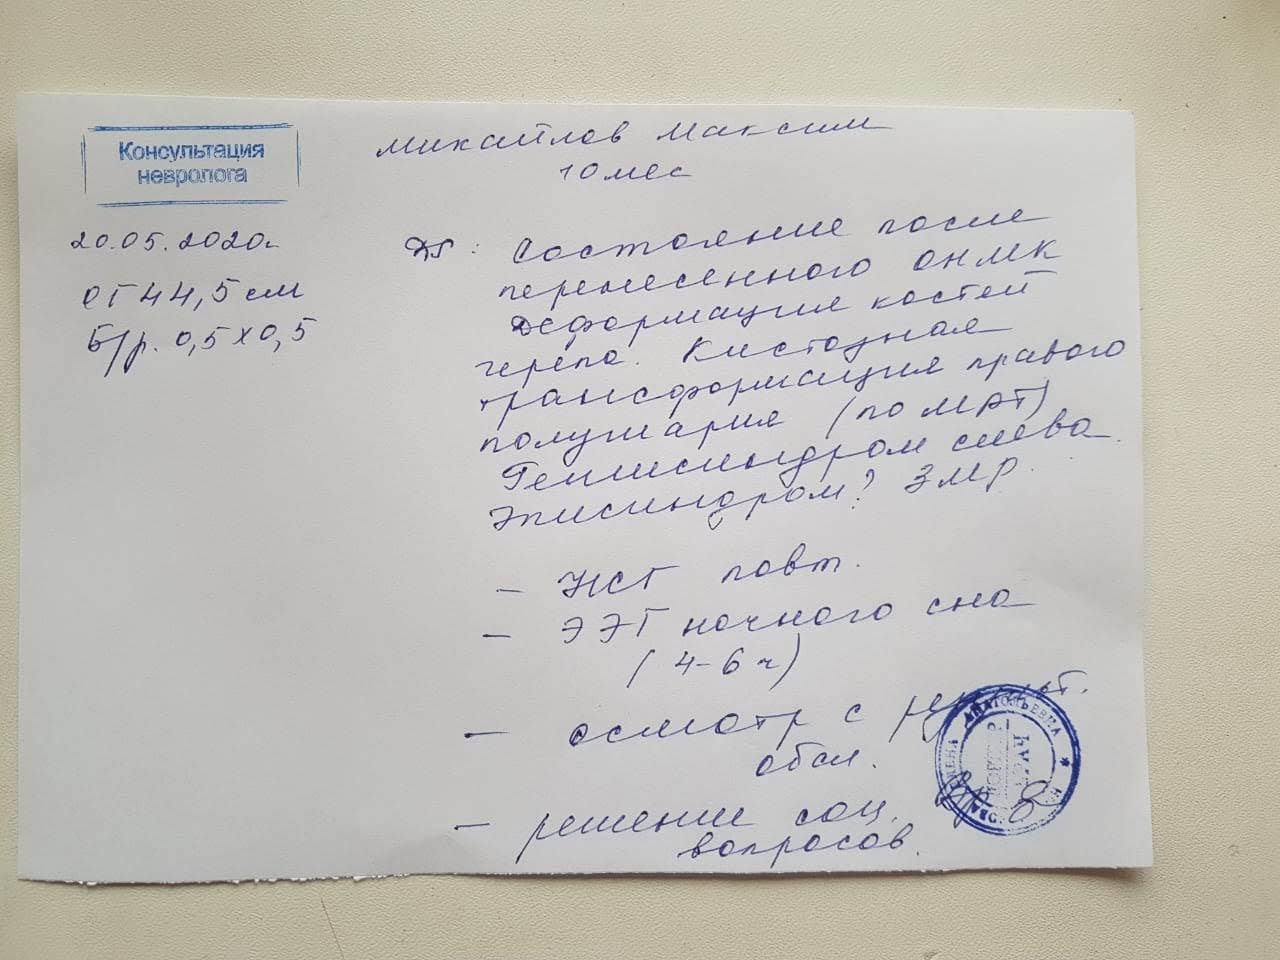 Консультация
невролога
20.05.2020г
ОГ 44,5 см
Б/р. 0,5х0,5
Михайлов Максим
10 мес
Ds: Состояние после
перенесенного ОНМК
Деформация костей
черепа. Кистозная
трансформация правого
полушария (по МРТ)
Гемисиндром слева.
Эписиндром? ЗМР.
- НСГ повт.
- ЭЭГ ночного сна
(4-6 ч)
- осмотр с результ.
обсл.
- решение соц.
вопросов.
АНАТОЛЬЕВНА